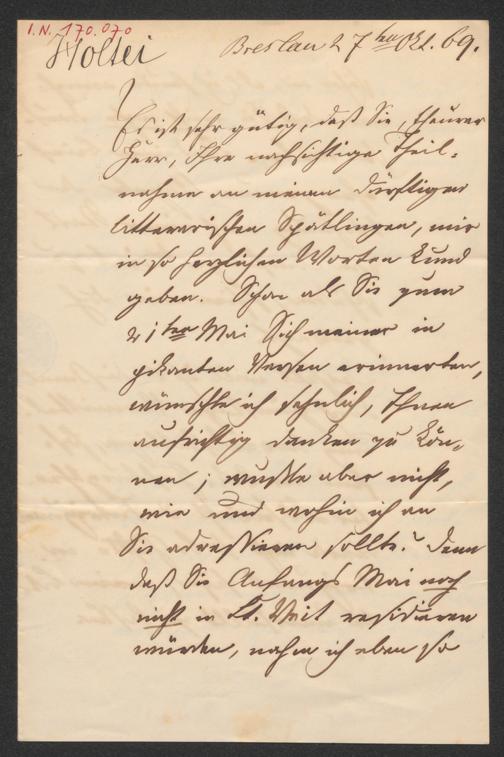 I.N. 170.070
Holtei
Breslau 27ten Okt. 69.
Es ist sehr gütig, daß Sie, theurer
Herr, Ihre nachsichtige Theil-
nahme an meinen dürftigen
litterarischen Spätlingen, mir
in so herzlichen Worten kund
geben. Schon als Sie zum
21ten Mai Sich meiner in
pikanten Versen erinnerten,
wünschte ich sehnlich, Ihnen
aufrichtig danken zu kön-
nen; wußte aber nicht,
wie und wohin ich an
Sie adressieren sollte? Denn
daß Sie Anfangs Mai noch
nicht in St. Veit residieren
würden, nahm ich eben so